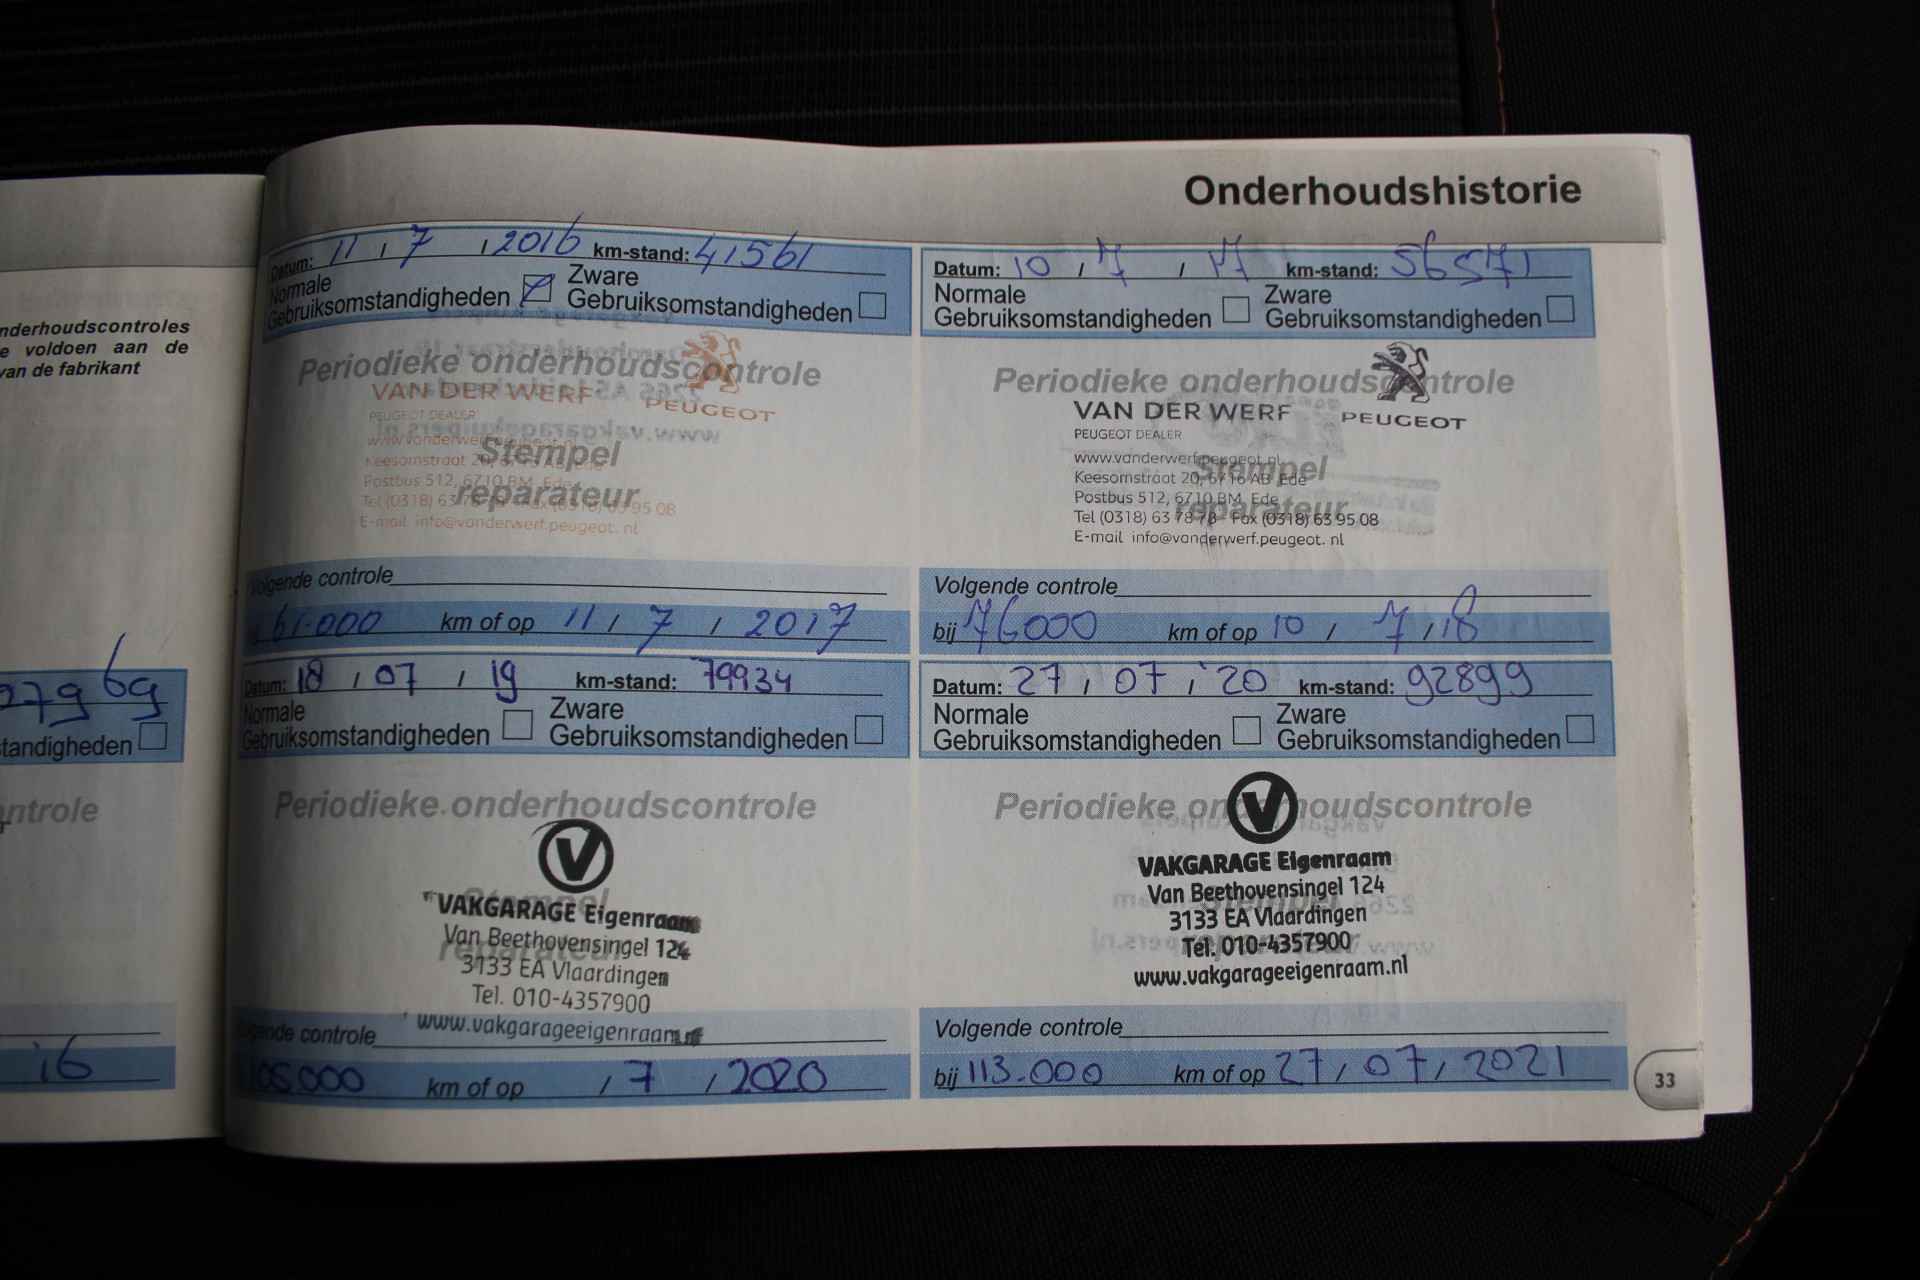 Onderhoudshistorie
nderhoudscontroles
e voldoen aan de
van de fabrikant
27969
tandigheden
ontrole
'16
Datum: 11 / 7 / 2016 km-stand: 41561
Normale
Gebruiksomstandigheden
Zware
Gebruiksomstandigheden
Periodieke onderhoudscontrole
VAN DER WERF
PEUGEOT
PEUGEOT DEALER
www.vanderwerf.peugeot.nl
Stempel
Keesomstraat 20, 6716 AB Ede
Postbus 512, 6710 BM, Ede
reparateur
Tel (0318) 63 78 78 - Fax (0318) 63 95 08
E-mail info@vanderwerf.peugeot. nl
Volgende controle
61.000 km of op 11 / 7 / 2017
Datum: 10 / 7 / 17 km-stand: 56571
Normale
Gebruiksomstandigheden
Zware
Gebruiksomstandigheden
Periodieke onderhoudscontrole
VAN DER WERF
PEUGEOT
PEUGEOT DEALER
www.vanderwerf.peugeot.nl
Stempel
Keesomstraat 20, 6716 AB Ede
Postbus 512, 6710 BM, Ede
reparateur
Tel (0318) 63 78 78 - Fax (0318) 63 95 08
E-mail info@vanderwerf.peugeot. nl
Volgende controle
bij 76000 km of op 10 / 7 / 18
Datum: 18 / 07 / 19 km-stand: 79934
Normale
Gebruiksomstandigheden
Zware
Gebruiksomstandigheden
Periodieke onderhoudscontrole
V
Stempel
VAKGARAGE Eigenraam
Van Beethovensingel 124
reparateur
3133 EA Vlaardingen
Tel. 010-4357900
www.vakgarageeigenraam.nl
Volgende controle
105.000 km of op / 7 / 2020
Datum: 27 / 07 / '20 km-stand: 92899
Normale
Gebruiksomstandigheden
Zware
Gebruiksomstandigheden
Periodieke onderhoudscontrole
V
VAKGARAGE Eigenraam
Van Beethovensingel 124
Stempel
3133 EA Vlaardingen
Tel. 010-4357900
reparateur
www.vakgarageeigenraam.nl
Volgende controle
bij 113.000 km of op 27 / 07 / 2021
33